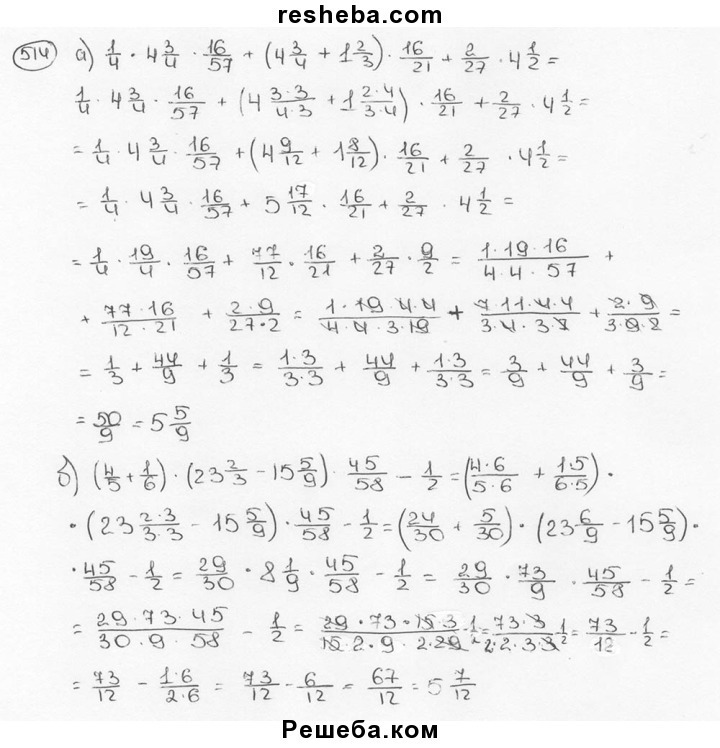 resheba.com
514 а) 1/4 · 4 3/4 · 16/57 + (4 3/4 + 1 2/3) · 16/21 + 2/27 · 4 1/2 =
1/4 · 4 3/4 · 16/57 + (4 3·3/4·3 + 1 2·4/3·4) · 16/21 + 2/27 · 4 1/2 =
= 1/4 · 4 3/4 · 16/57 + (4 9/12 + 1 8/12) · 16/21 + 2/27 · 4 1/2 =
= 1/4 · 4 3/4 · 16/57 + 5 17/12 · 16/21 + 2/27 · 4 1/2 =
= 1/4 · 19/4 · 16/57 + 77/12 · 16/21 + 2/27 · 9/2 = 1·19·16/4·4·57 +
+ 77·16/12·21 + 2·9/27·2 = 1·19·4·4/4·4·3·19 + 7·11·4·4/3·4·3·7 + 2·9/3·9·2 =
= 1/3 + 44/9 + 1/3 = 1·3/3·3 + 44/9 + 1·3/3·3 = 3/9 + 44/9 + 3/9 =
= 50/9 = 5 5/9
б) (4/5 + 1/6) · (23 2/3 - 15 5/9) · 45/58 - 1/2 = (4·6/5·6 + 1·5/6·5) ·
· (23 2·3/3·3 - 15 5/9) · 45/58 - 1/2 = (24/30 + 5/30) · (23 6/9 - 15 5/9) ·
· 45/58 - 1/2 = 29/30 · 8 1/9 · 45/58 - 1/2 = 29/30 · 73/9 · 45/58 - 1/2 =
= 29·73·45/30·9·58 - 1/2 = 29·73·15·3/15·2·9·2·29 - 1/2 = 73·3/2·2·3·3 - 1/2 = 73/12 - 1/2 =
= 73/12 - 1·6/2·6 = 73/12 - 6/12 = 67/12 = 5 7/12
Решеба.ком